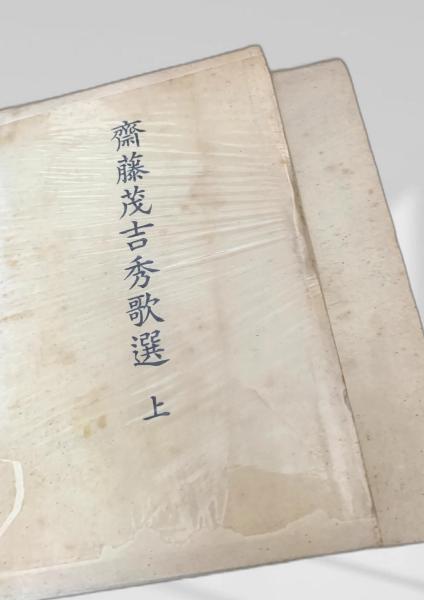 齋藤茂吉秀歌選 上